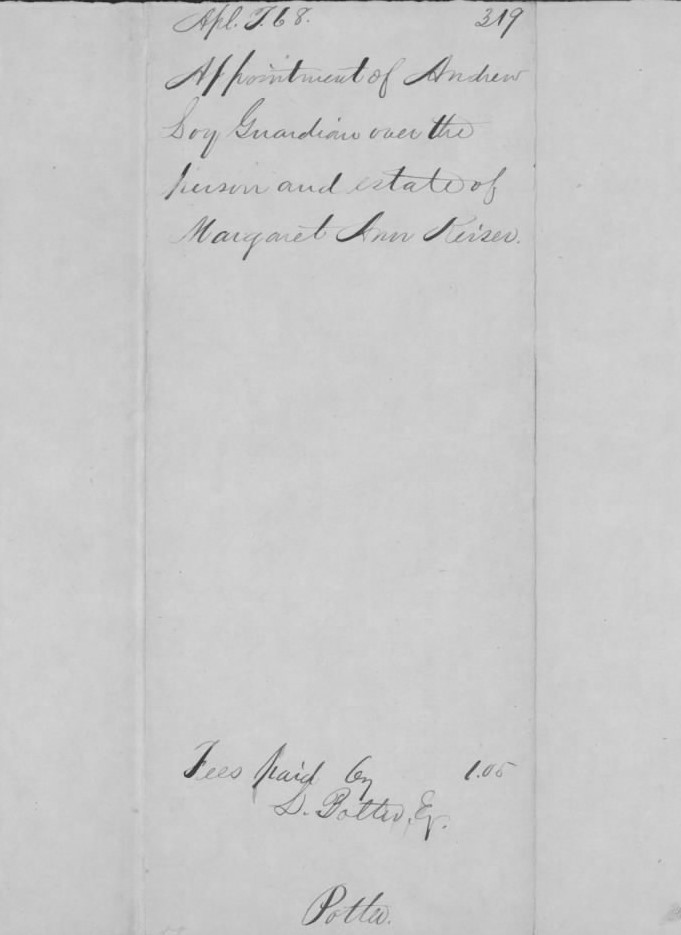 Apl. T. 68. 319
Appointment of Andrew
Loy Guardian over the
person and estate of
Margaret Ann Keiser.
Fees paid by 1.05
L. Potter, Eq.
Potter.